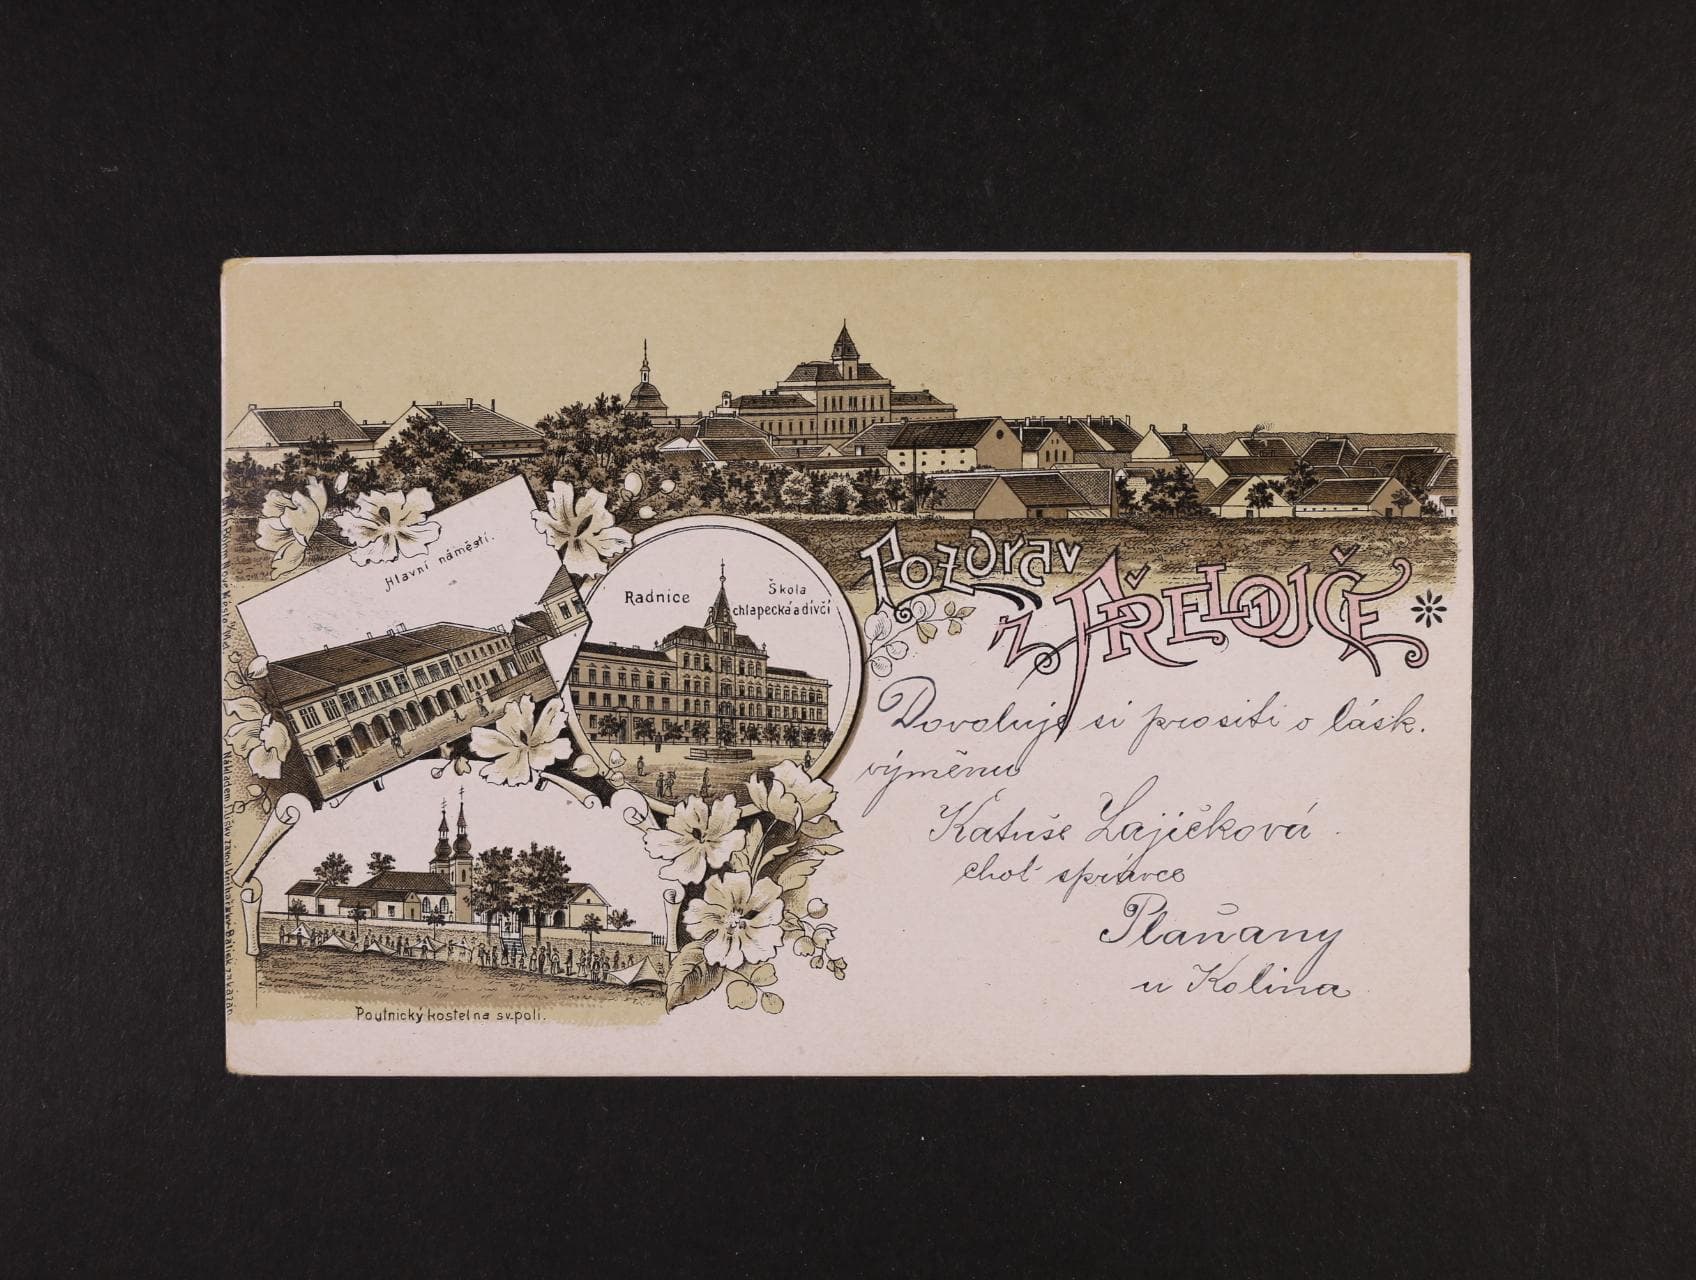 Pozdrav
z PŘELOUČE
Hlavní náměstí.
Radnice
Škola
chlapecká a dívčí
Poutnický kostel na sv. poli.
Dovoluje si prositi o lásk.
výměnu
Katuše Lajičková
choť správce
Plaňany
u Kolína